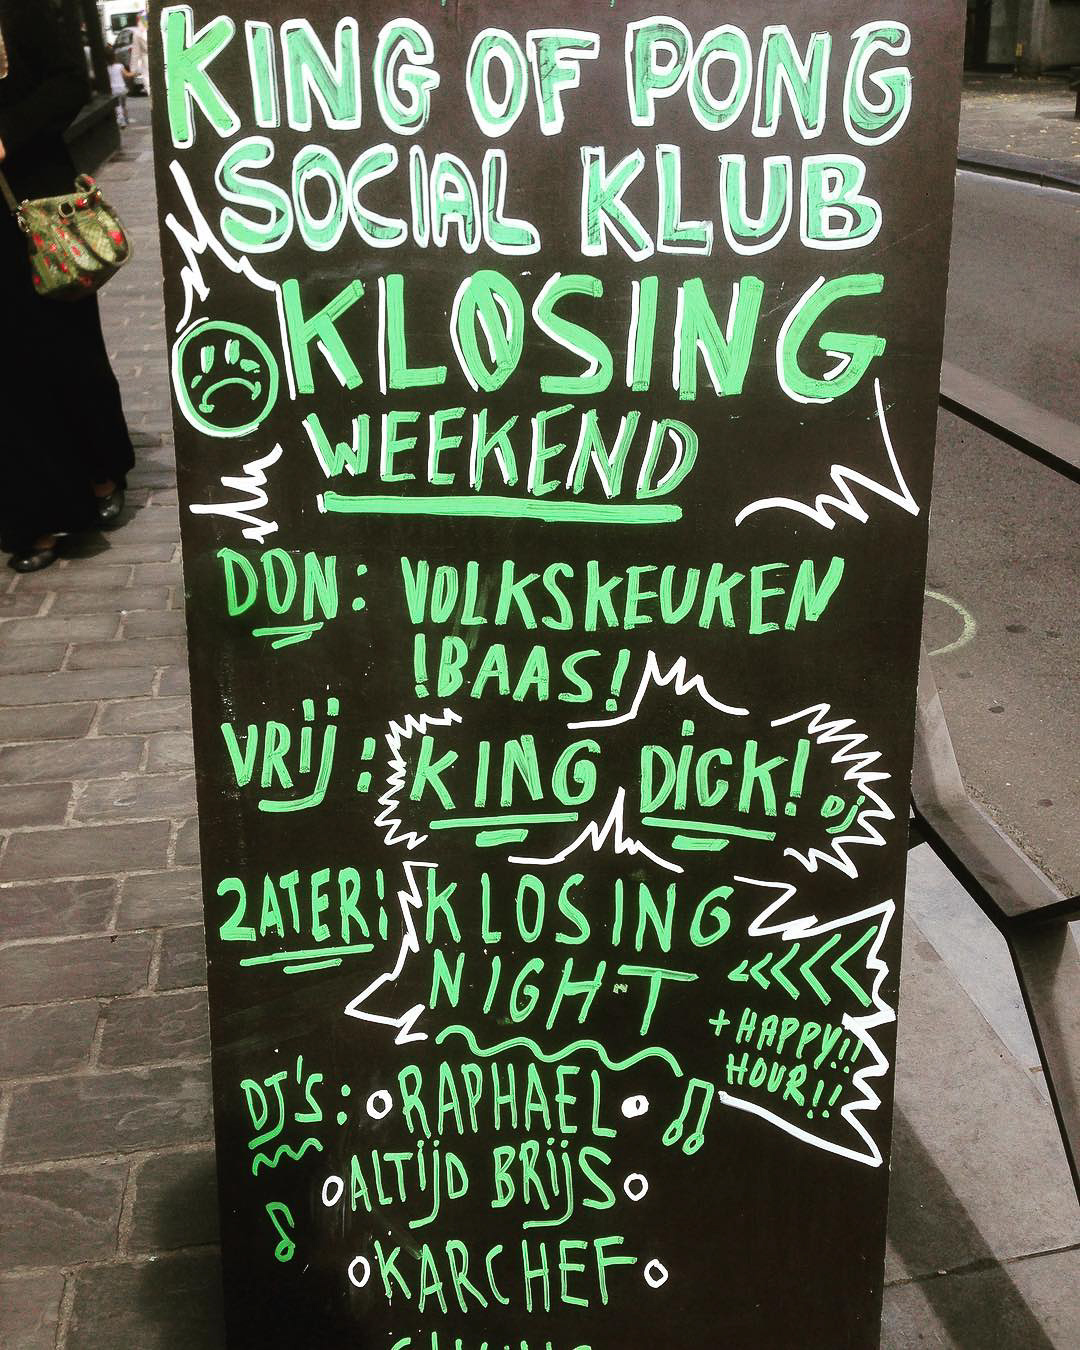 KING OF PONG
SOCIAL KLUB
KLOSING
WEEKEND
DON: VOLKSKEUKEN
!BAAS!
VRIJ: KING DICK! DJ
ZATER: KLOSING
NIGHT
+ HAPPY!!
HOUR!!
DJ'S: RAPHAEL
ALTIJD BRIJS
KARCHEF